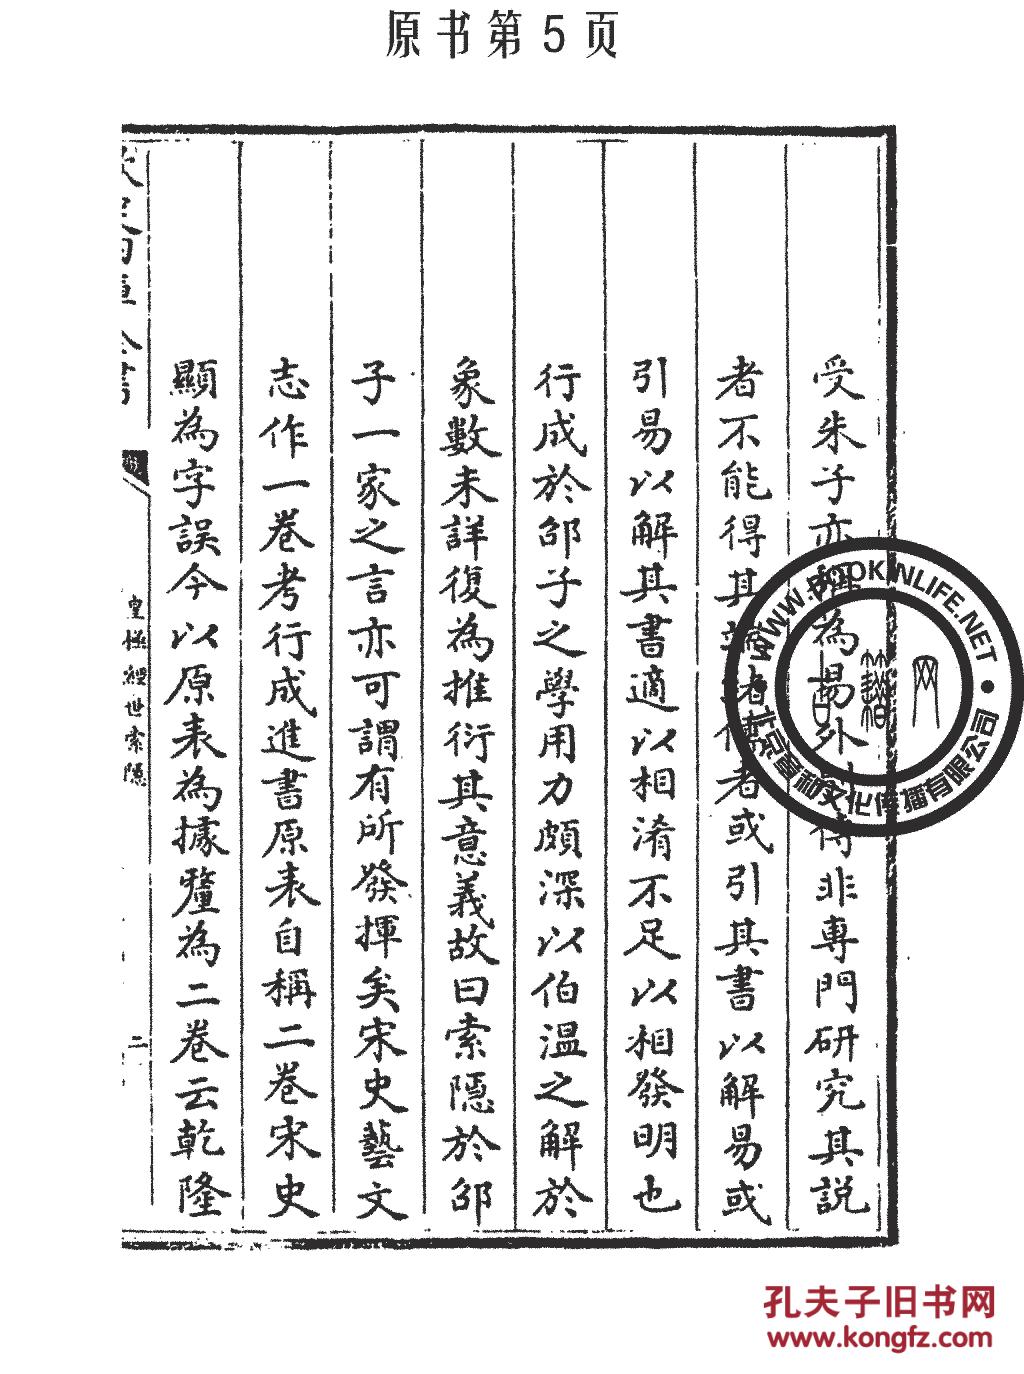 原书第5页
受朱子亦稱為易外別傳非專門研究其説
者不能得其端緒儒者或引其書以解易或
引易以解其書適以相淆不足以相發明也
行成於邵子之學用力頗深以伯温之解於
象數未詳復為推衍其意義故曰索隱於邵
子一家之言亦可謂有所發揮矣宋史藝文
志作一卷考行成進書原表自稱二卷宋史
顯為字誤今以原表為據釐為二卷云乾隆
皇極經世索隱
二
WWW.BOOKINLIFE.NET
文化传播有限公司
孔夫子旧书网
www.kongfz.com